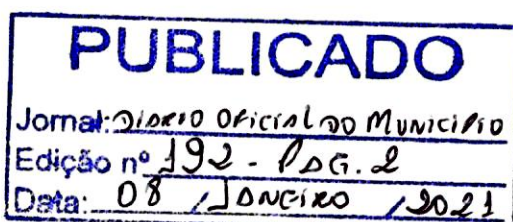 PUBLICADO
Jornal: DIÁRIO OFICIAL DO MUNICÍPIO
Edição nº 192 - PÁG. 2
Data: 08 / JANEIRO / 2021